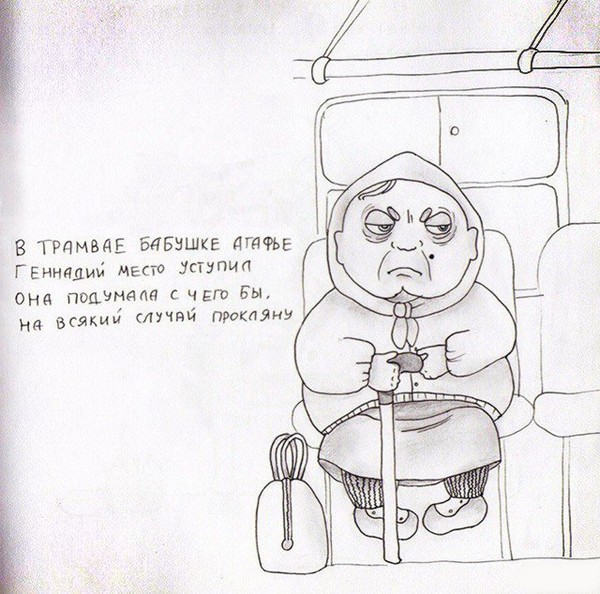 В ТРАМВАЕ БАБУШКЕ АГАФЬЕ
ГЕННАДИЙ МЕСТО УСТУПИЛ
ОНА ПОДУМАЛА С ЧЕГО БЫ,
НА ВСЯКИЙ СЛУЧАЙ ПРОКЛЯНУ